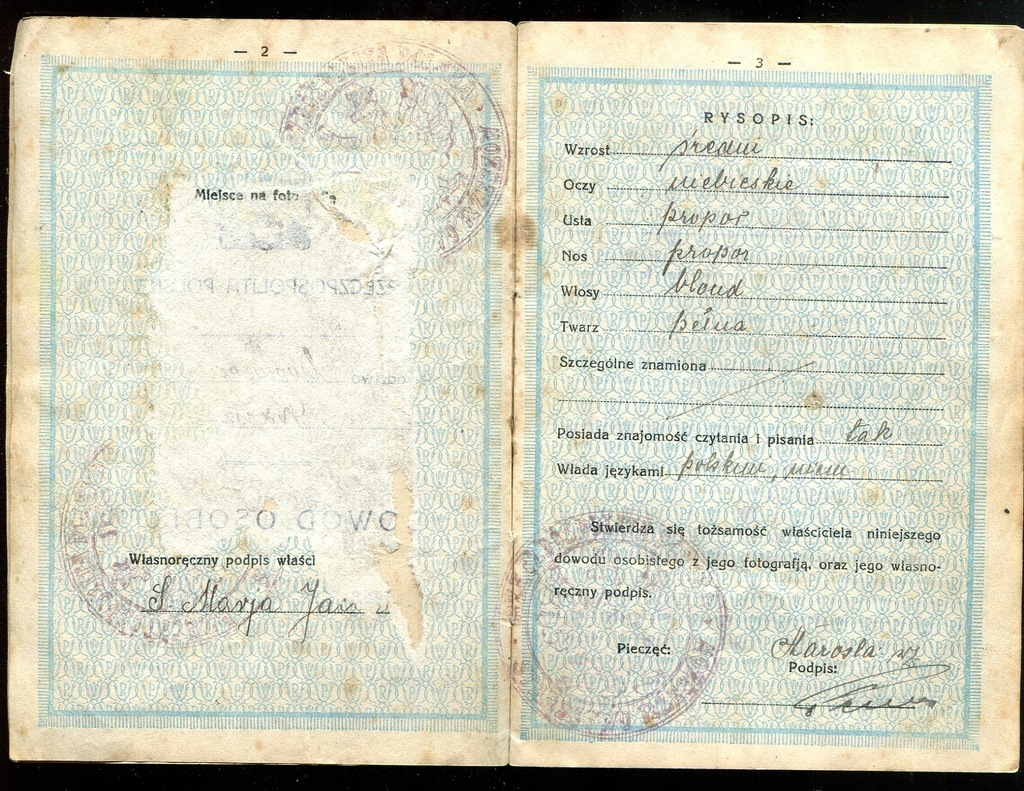 — 2 —
Miejsce na foto
RZECZPOSPOLITA POLSK
DOWÓD OSOBI
Własnoręczny podpis właści
S. Marja Jan
— 3 —
RYSOPIS:
Wzrost średni
Oczy niebieskie
Usta propor
Nos propor
Włosy blond
Twarz pełna
Szczególne znamiona
Posiada znajomość czytania i pisania tak
Włada językami polskim, niem
Stwierdza się tożsamość właściciela niniejszego
dowodu osobistego z jego fotografją, oraz jego własno-
ręczny podpis.
Pieczęć:
Starosta
Podpis: